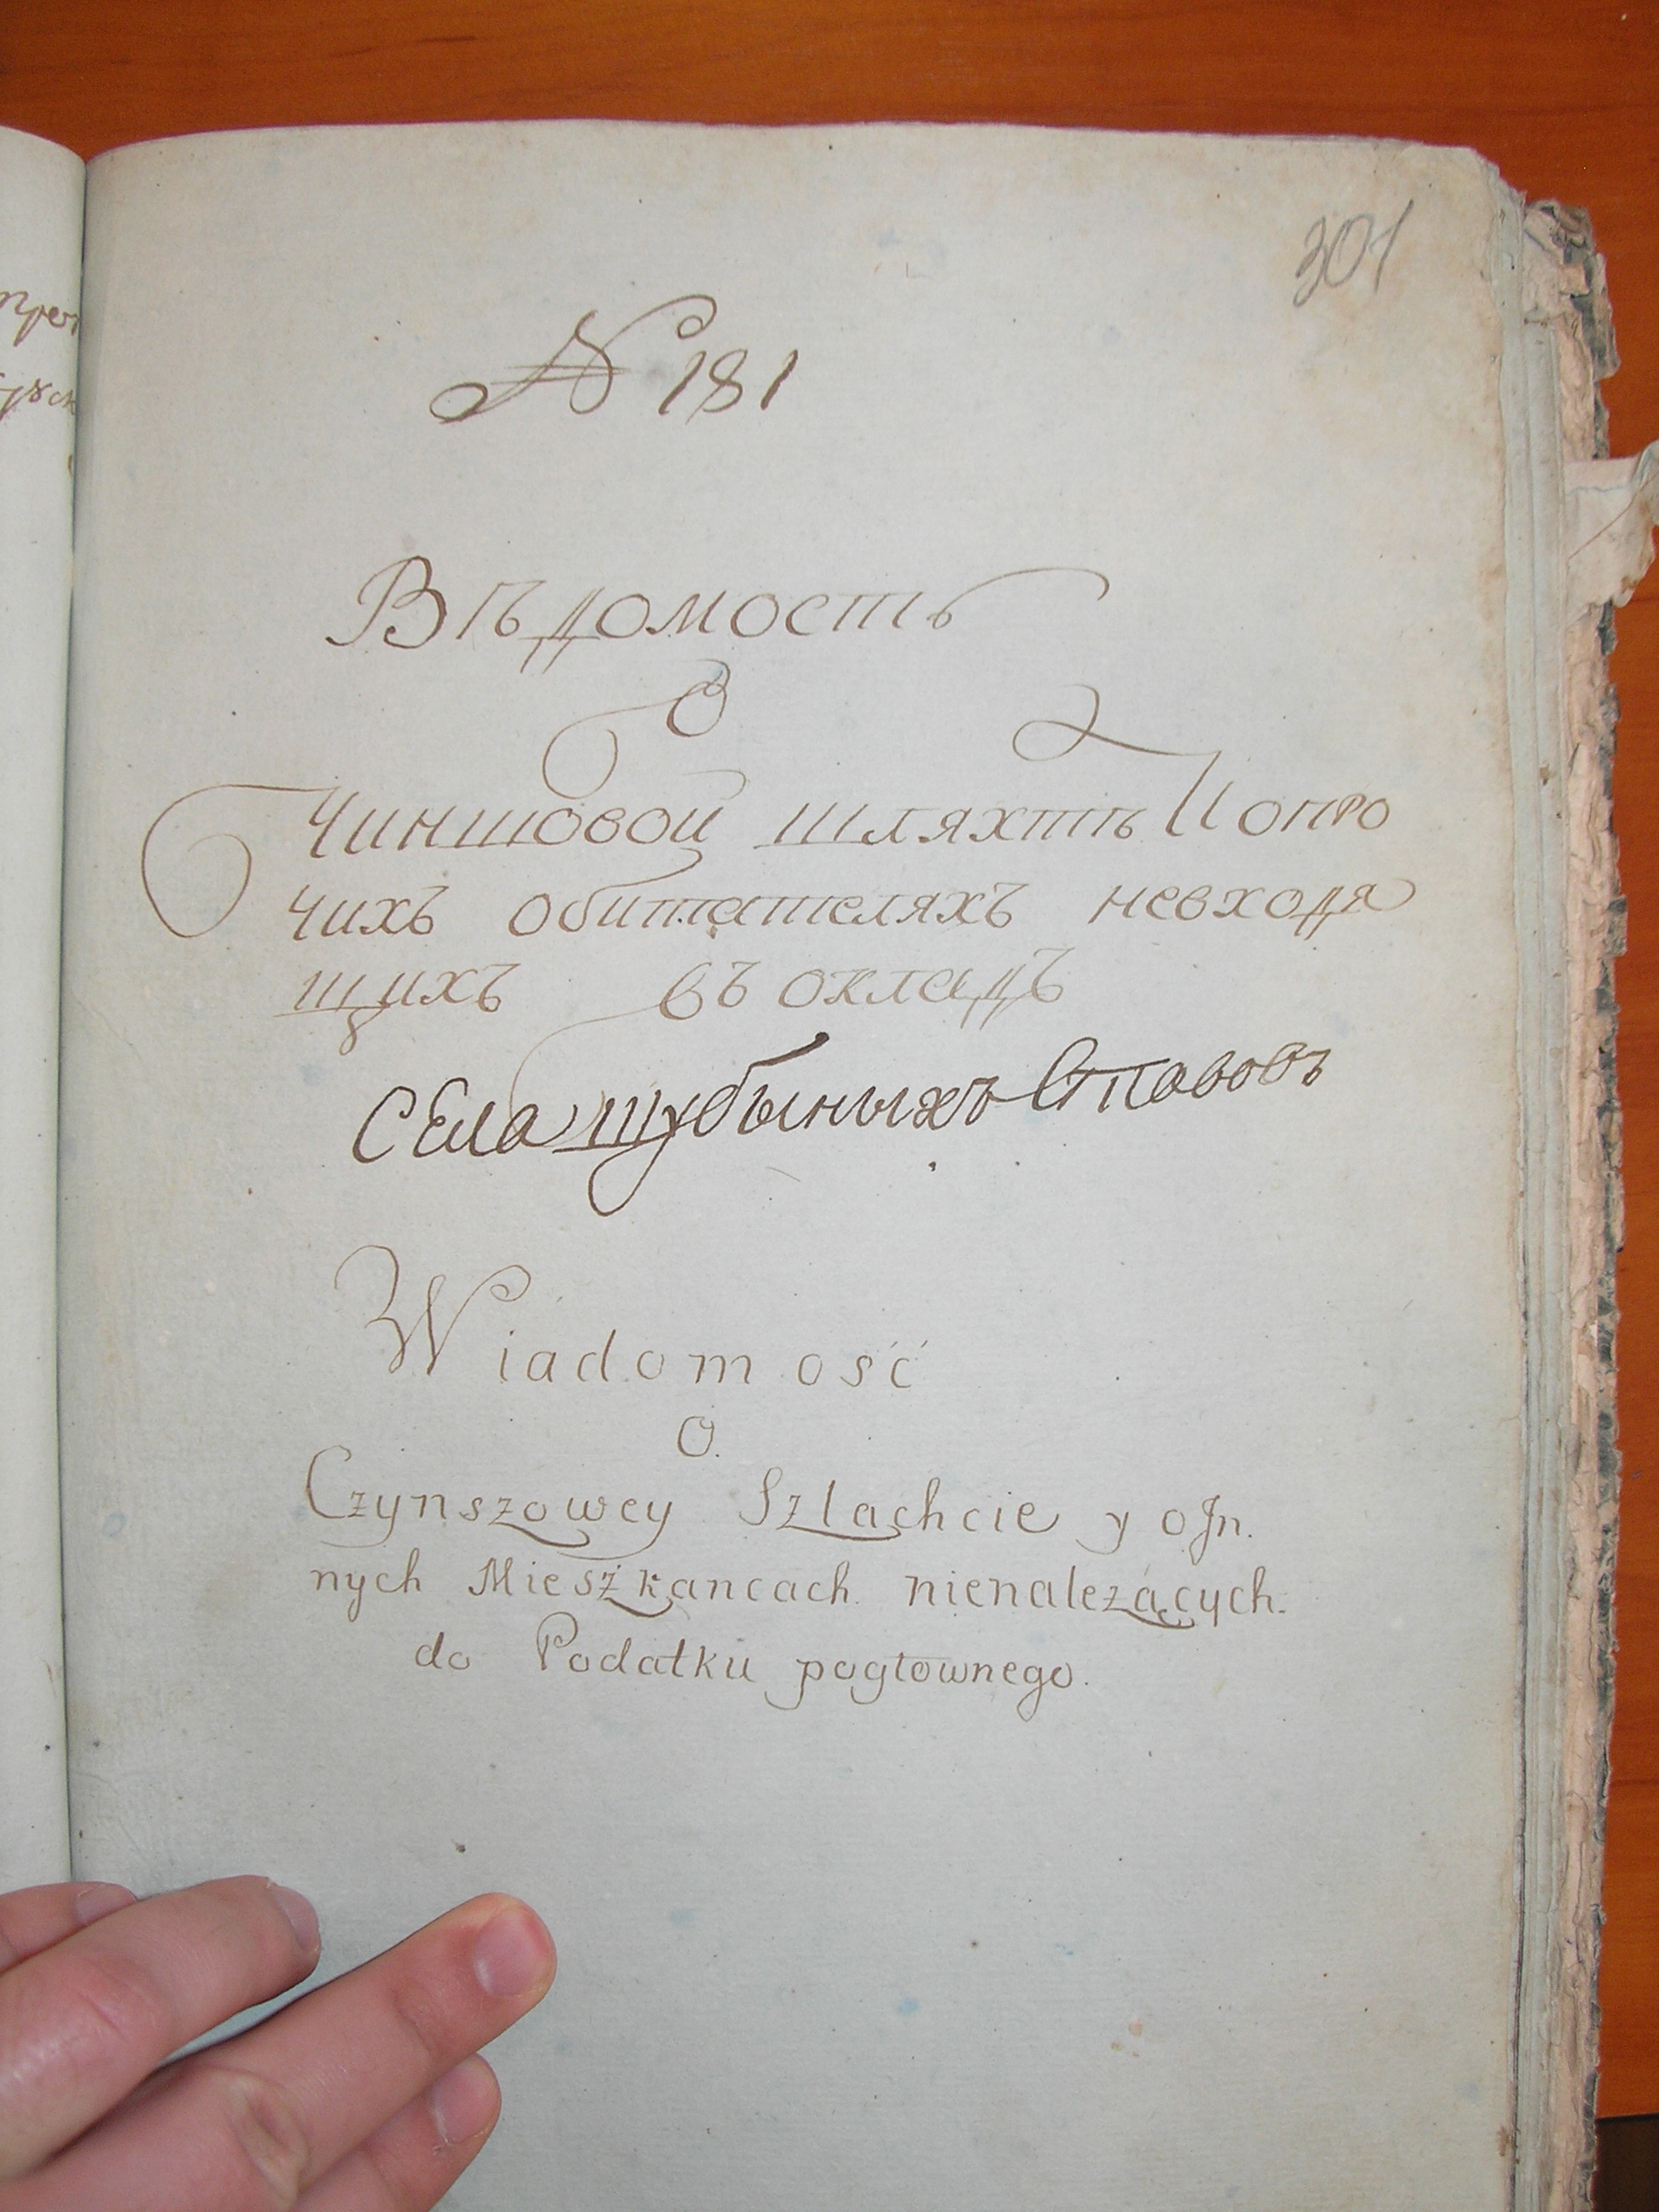 301
№ 181
Вѣдомость
О
Чиншовой шляхтѣ И опро
чихъ обитателяхъ невходя
щихъ въ окладъ
СЕла шубыныхъ Ставовъ
Wiadomość
O.
Czynszowey Szlachcie y o Jn.
nych Mieszkancach nienależących.
do Podatku pogłownego.